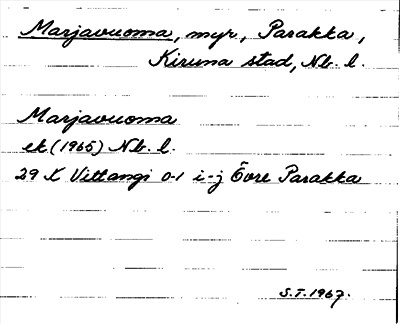 Marjavuoma, myr, Parakka,
Kiruna stad, Nb. l.
Marjavuoma
ek (1965) Nb. l.
29 K Vittangi 0-1 i-j Övre Parakka
S.T. 1967.